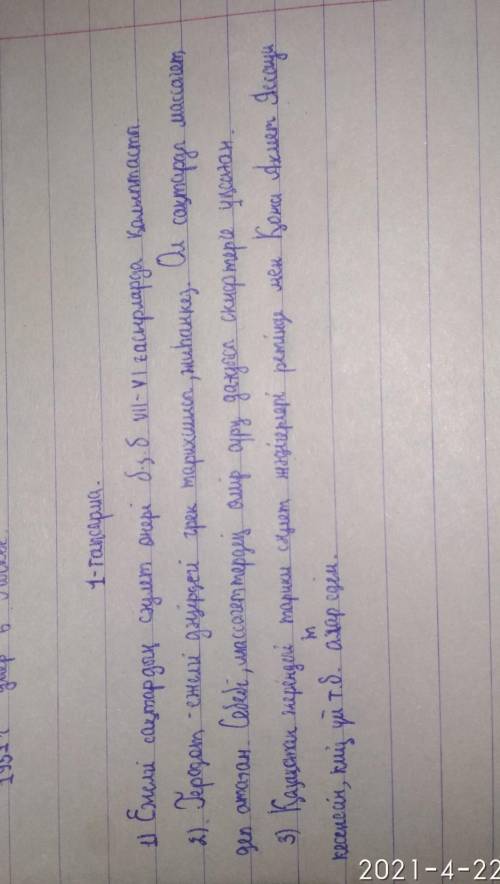 1-тапсырма.
1) Ежелгі сақтардың сәулет өнері б.з.б VII-VI ғасырларда қалыптасты.
2) Геродот - ежелгі дәуірдегі грек тарихшысы, жиһанкез. Ол сақтарды массагет
деп атаған. Себебі, массагеттердің өмір сүру дағдысы скифтерге ұқсаған.
3) Қазақстан жеріндегі тарихи сәулет жәдігерлері ретінде мен Қожа Ахмет Яссауи
кесенесін, киіз үй т.б. алар едім.
2021-4-22